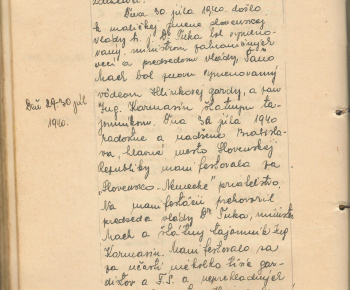 Dňa 30. júla 1940. došlo
k maličkej zmene slovenskej
vlády t. j. Dr Tuka bol vymeno-
vaný ministrom zahraničných
vecí a predsedom vlády, Šaňo
Mach bol znovu vymenovaný
vodcom Hlinkovej gardy, a pán
Ing. Karmasin štátnym ta-
jomníkom. Dňa 30 júla 1940
radostne a nadšene Bratisla-
va, hlavné mesto Slovenskej
Republiky manifestovala za
"Slovensko-Nemecké" priateľstvo.
Na manifestácii prehovoril
predseda vlády Dr Tuka, minister
Mach a štátny tajomník Ing
Karmasin. Manifestovalo sa
za účasti niekoľko tisíc gar-
distov a F.S. a neprehľadných
Dňa 29-30 júl
1940.